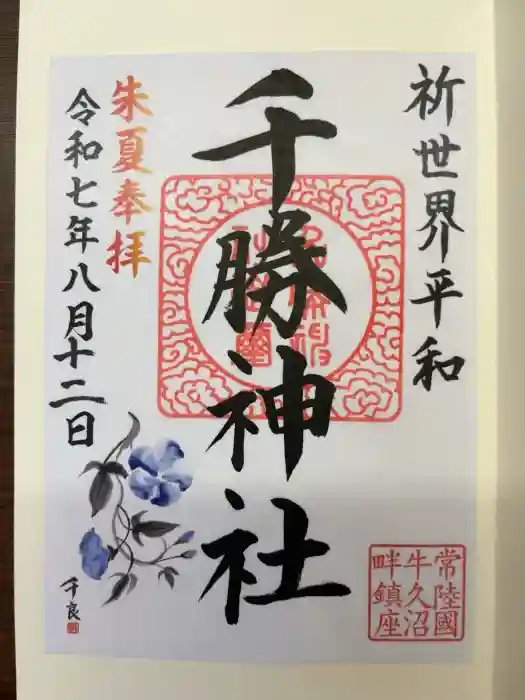 祈世界平和
千勝神社
朱夏奉拝
令和七年八月十二日
常陸國
牛久沼
畔鎮座
千良